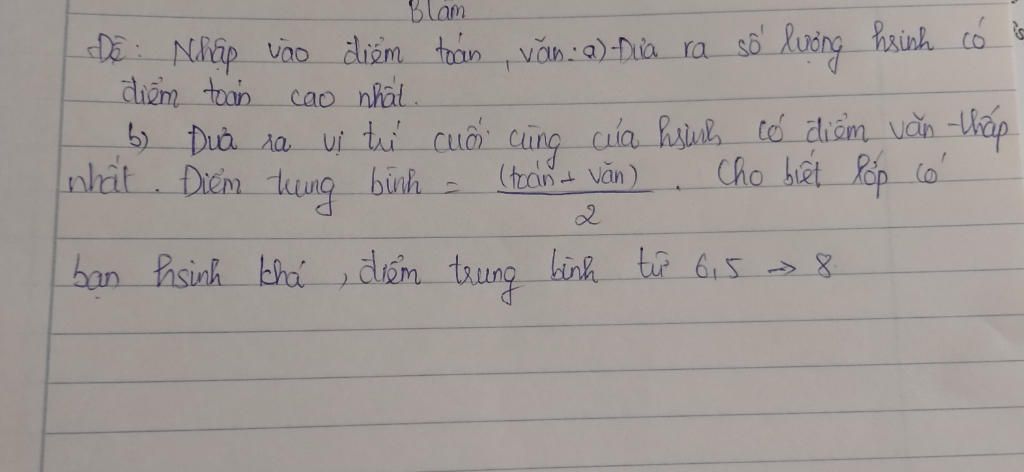 Blàm
Đề: Nhập vào điểm toán, văn: a) Đưa ra số lượng hsinh có
điểm toán cao nhất.
b) Đưa ra vị trí cuối cùng của hsinh có điểm văn thấp
nhất. Điểm trung bình = (toán + văn) / 2 . Cho biết lớp có
bạn hsinh khá, điểm trung bình từ 6,5 → 8.